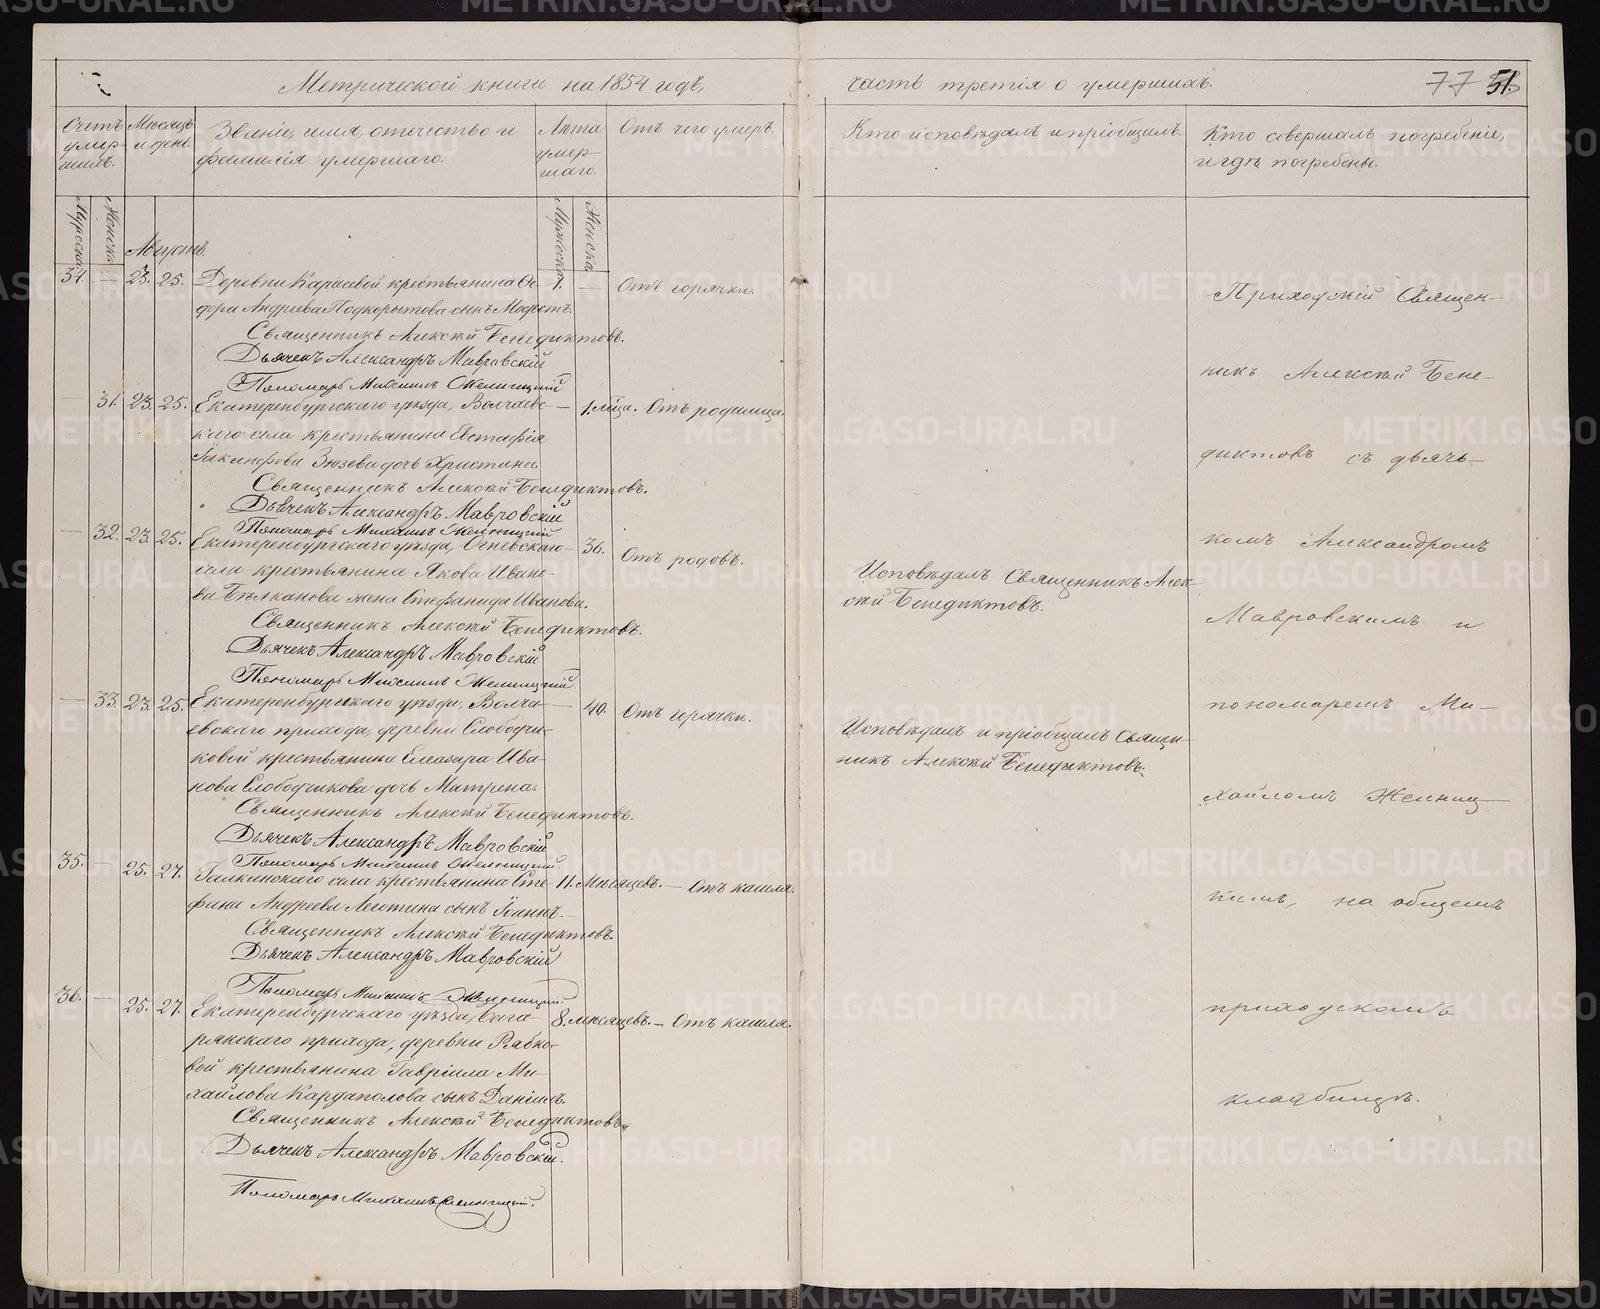 Метрической книги на 1854 годъ,
часть третія о умершихъ.
77 51
Счетъ умер-шихъ.
Мѣсяцъ и день.
Званіе, имя, отечество и
фамилія умершаго.
Лѣта
умер-
шаго.
Отъ чего умеръ.
Кто исповѣдалъ и пріобщилъ.
Кто совершалъ погребеніе,
и гдѣ погребены.
Мужеска.
Женска.
Мужеска.
Женска.
Августъ.
— 23. 25. Деревни Карасевой крестьянина Ѳе- 1. — Отъ горячки.
дора Андреева Подкорытова сынъ Модестъ.
Священникъ Алексѣй Бенедиктовъ.
Дьячекъ Александръ Мавровскій
Пономарь Михаилъ Желницкій
— 31. 23. 25. Екатеринбургскаго уѣзда, — 1. мѣся. Отъ родимца.
каго села крестьянина Евстафія
Зюзева дочь Христина
Священникъ Алексѣй Бенедиктовъ.
Дьячекъ Александръ Мавровскій
Пономарь Михаилъ Желницкій
— 32. 23. 25. Екатеринбургскаго уѣзда, Огневскаго — 36. Отъ родовъ.
села крестьянина Якова Ивано-
ва жена Стефанида Иванова.
Священникъ Алексѣй Бенедиктовъ.
Дьячекъ Александръ Мавровскій
Пономарь Михаилъ Желницкій
Исповѣдалъ Священникъ Алек-
сѣй Бенедиктовъ.
— 33. 23. 25. Екатеринбургскаго уѣзда, — 40. Отъ горячки.
евскаго прихода, деревни Слободчи-
ковой крестьянина Елеазара Ива-
нова Слободчикова дочь Матрена.
Священникъ Алексѣй Бенедиктовъ.
Дьячекъ Александръ Мавровскій
Пономарь Михаилъ Желницкій
Исповѣдалъ и пріобщилъ Священ-
никъ Алексѣй Бенедиктовъ.
35. — 25. 27. Галкинскаго села крестьянина Сте- 11. Мѣсяцевъ. — Отъ кашля.
фана Андреева сынъ Іоаннъ.
Священникъ Алексѣй Бенедиктовъ.
Дьячекъ Александръ Мавровскій
Пономарь Михаилъ Желницкій.
36. — 25. 27. Екатеринбургскаго уѣзда, Бага- 8. мѣсяцевъ. — Отъ кашля.
рякскаго прихода, деревни Рябко-
вой крестьянина Гавріила Ми-
хайлова Кардаполова сынъ Даніилъ.
Священникъ Алексѣй Бенедиктовъ.
Дьячекъ Александръ Мавровскій.
Пономарь Михаилъ Желницкій.
Приходскій Священ-
никъ Алексѣй Бене-
диктовъ съ дьячь-
комъ Александромъ
Мавровскимъ и
пономаремъ Ми-
хайломъ Желниц-
кимъ, на общемъ
приходскомъ
кладбищѣ.
METRIKI.GASO-URAL.RU